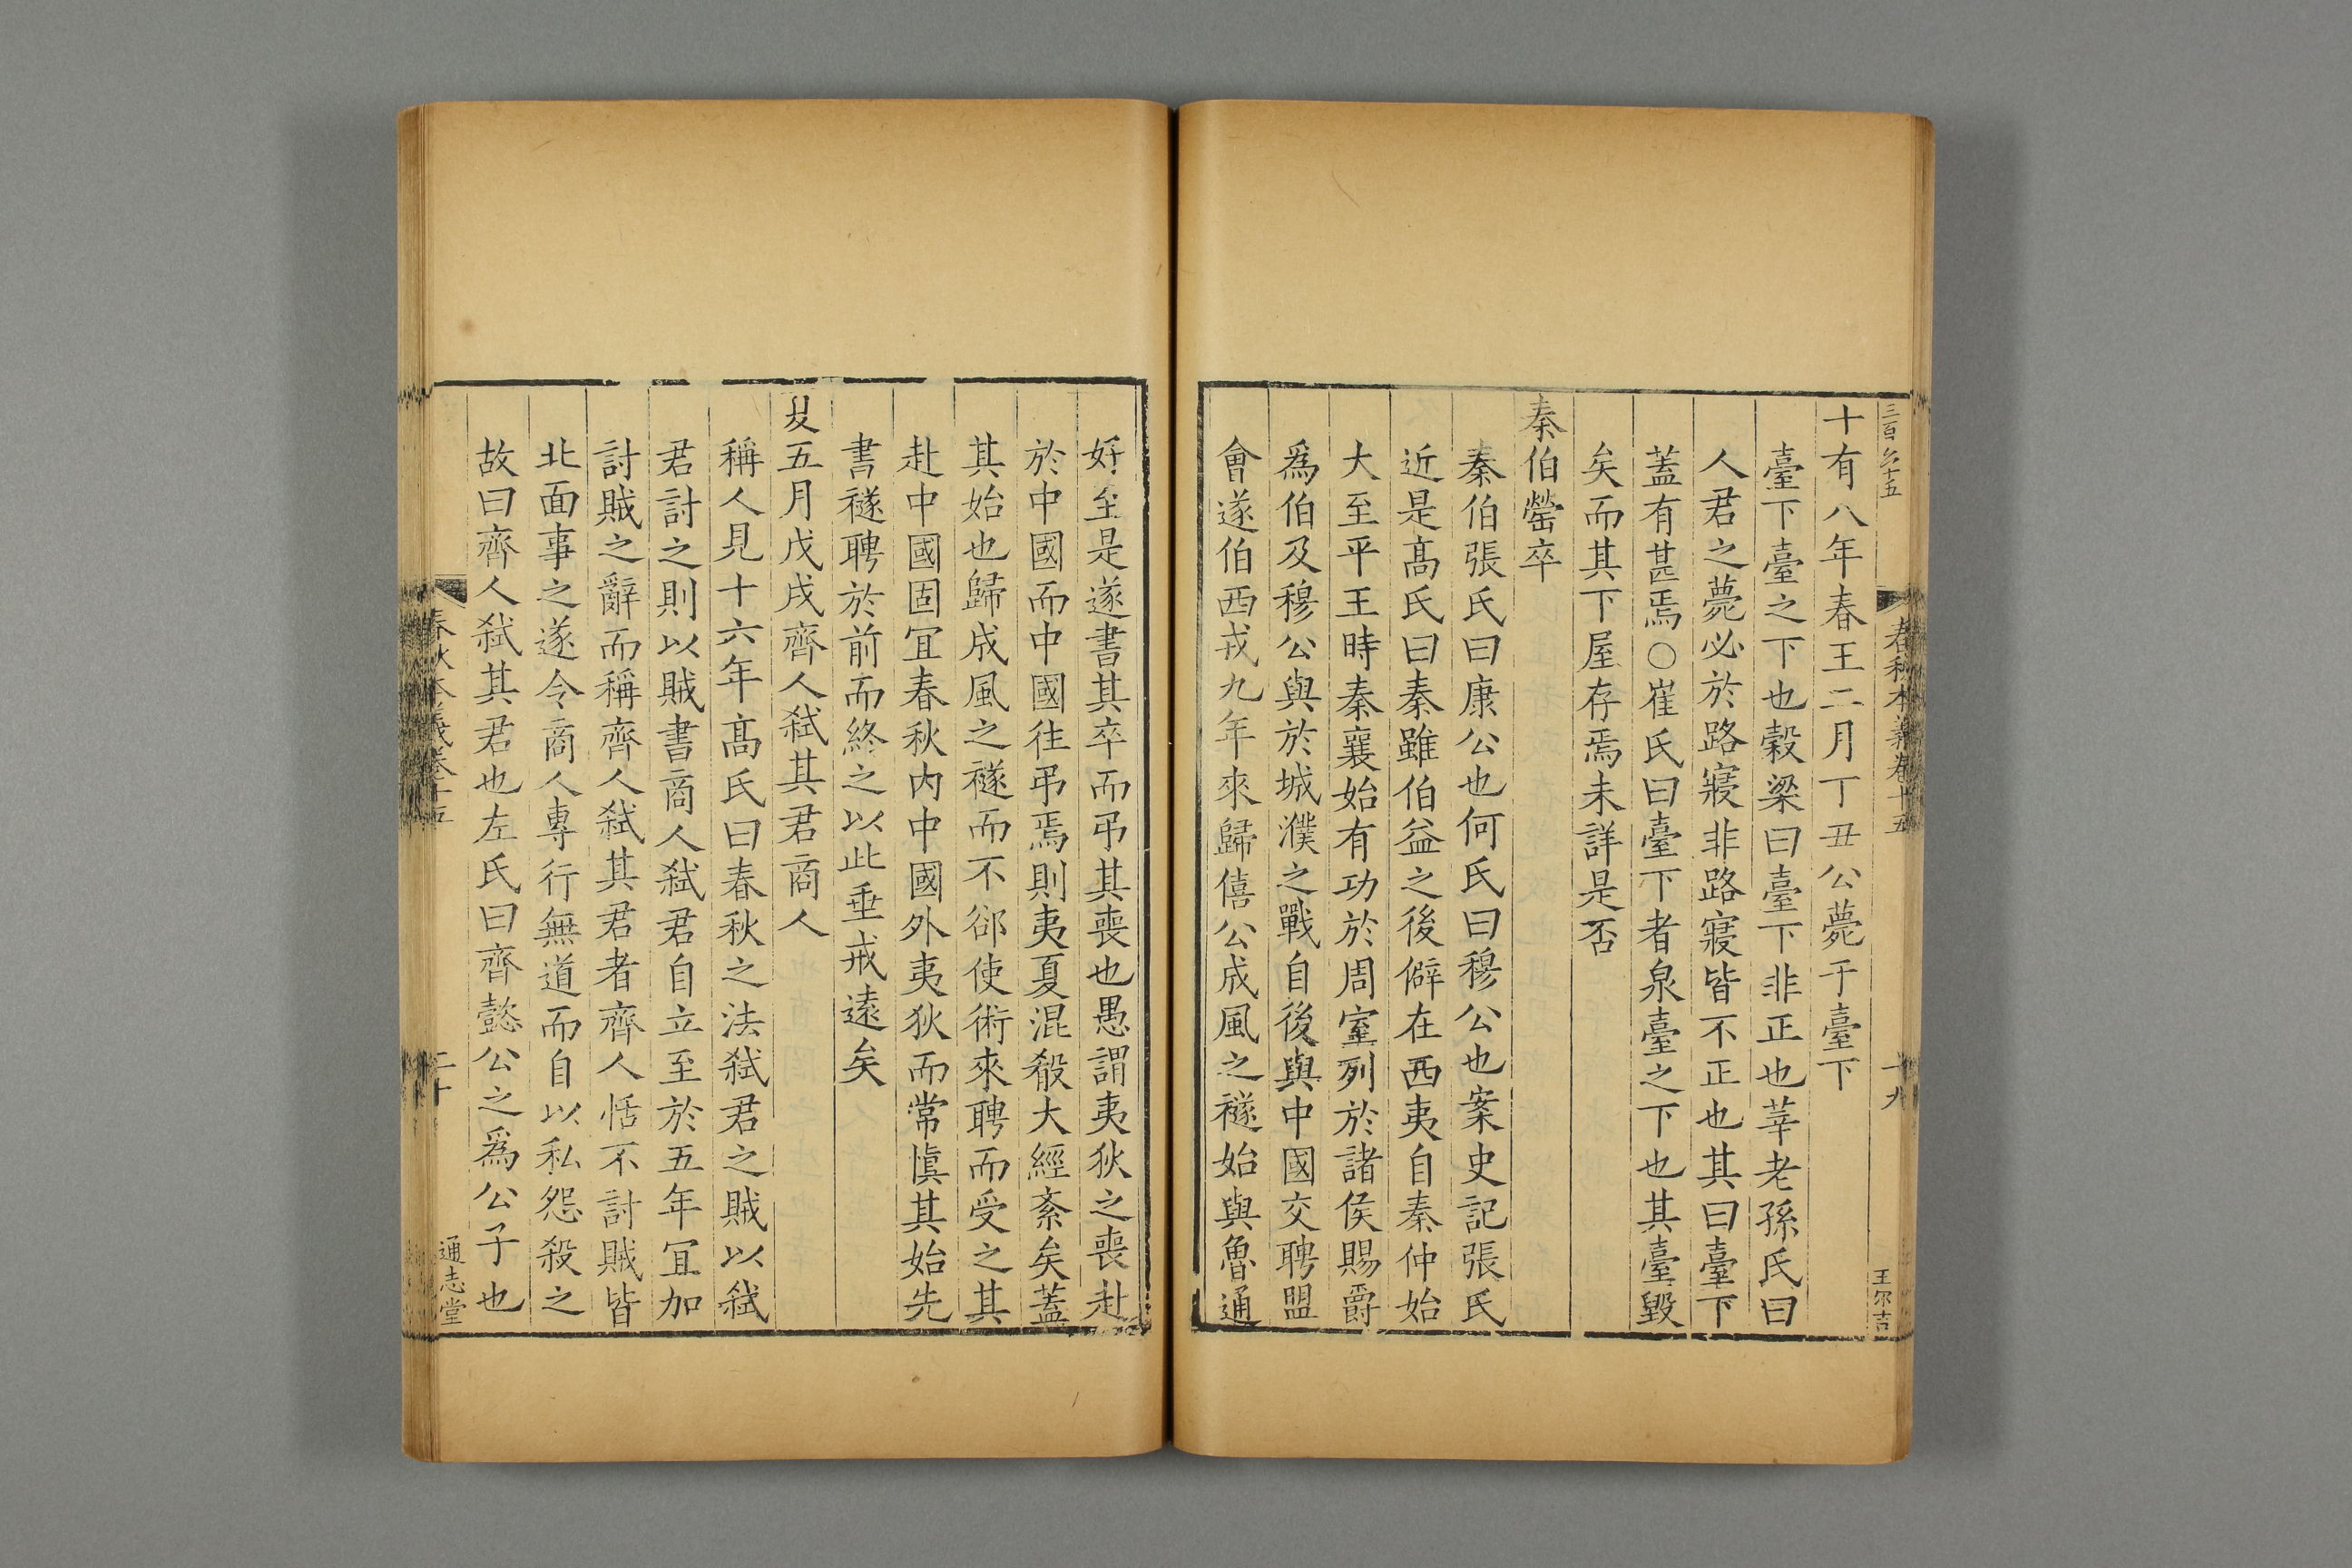 春秋本義卷十五
十九
王尔吉
十有八年春王二月丁丑公薨于臺下
臺下臺之下也穀梁曰臺下非正也莘老孫氏曰
人君之薨必於路寢非路寢皆不正也其曰臺下
蓋有甚焉○崔氏曰臺下者泉臺之下也其臺毀
矣而其下屋存焉未詳是否
秦伯罃卒
秦伯張氏曰康公也何氏曰穆公也案史記張氏
近是髙氏曰秦雖伯益之後僻在西夷自秦仲始
大至平王時秦襄始有功於周室列於諸侯賜爵
爲伯及穆公與於城濮之戰自後與中國交聘盟
會遂伯西戎九年來歸僖公成風之襚始與魯通
好至是遂書其卒而弔其喪也愚謂夷狄之喪赴
於中國而中國往弔焉則夷夏混殽大經紊矣蓋
其始也歸成風之襚而不郤使術來聘而受之其
赴中國固宜春秋內中國外夷狄而常愼其始先
書襚聘於前而終之以此垂戒遠矣
夏五月戊戌齊人弑其君商人
稱人見十六年髙氏曰春秋之法弑君之賊以弑
君討之則以賊書商人弑君自立至於五年宜加
討賊之辭而稱齊人弑其君者齊人恬不討賊皆
北面事之遂令商人專行無道而自以私怨殺之
故曰齊人弑其君也左氏曰齊懿公之爲公子也
春秋本義卷十五
二十
通志堂